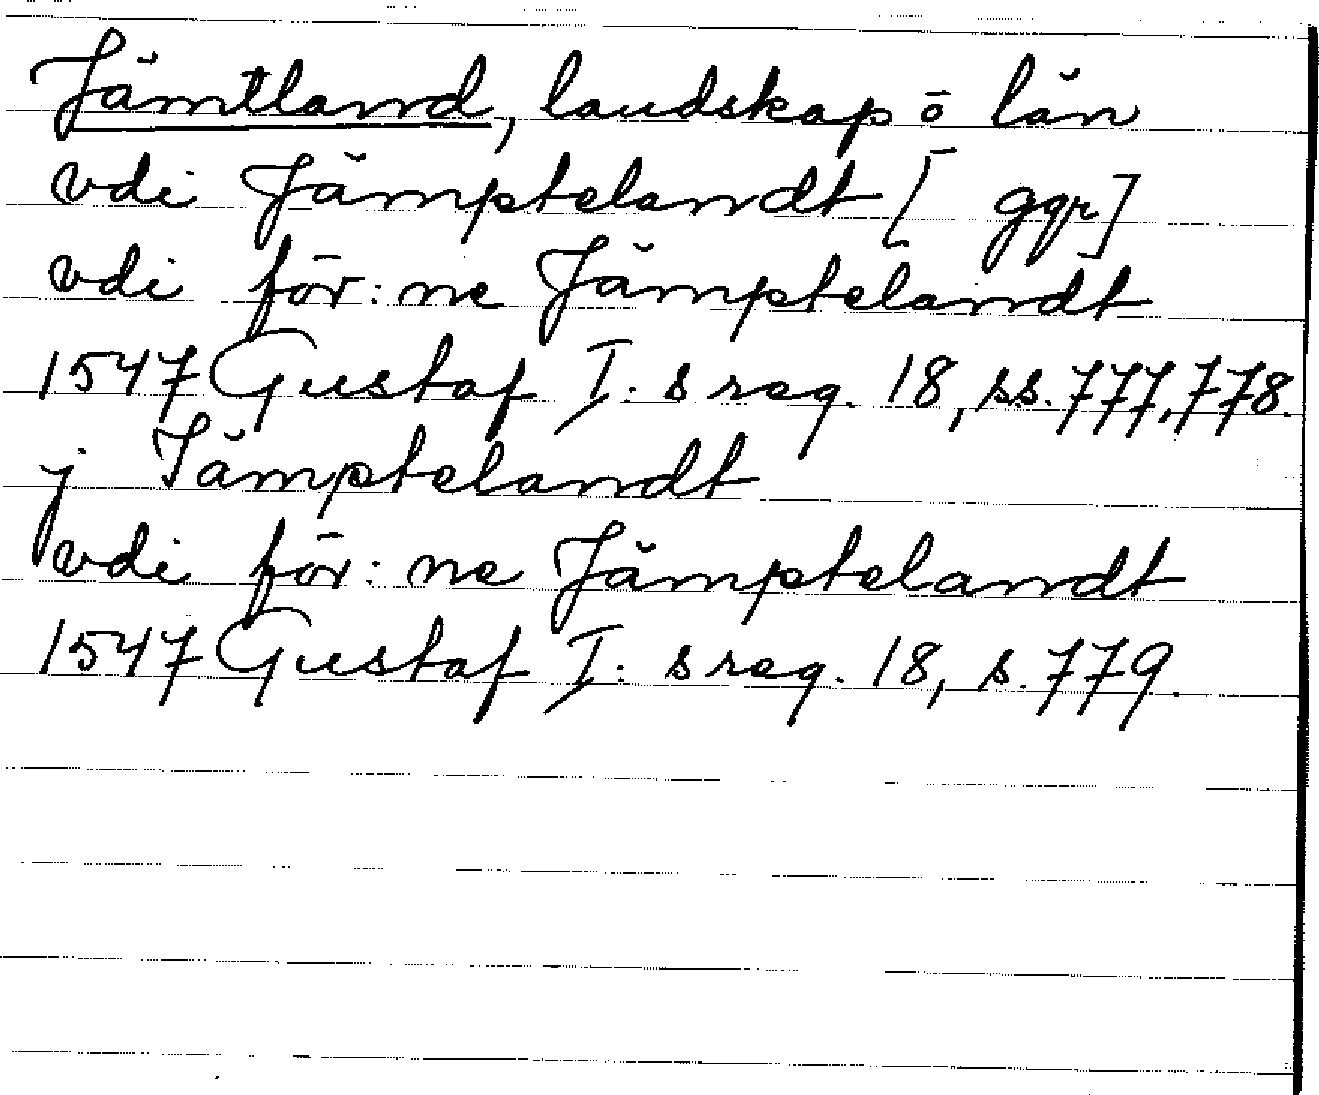 Jämtland, landskap o län
vdi Jämptelandt [ ggr]
vdi för: ne Jämptelandt
1547 Gustaf I: s reg. 18, ss. 777, 778.
j Jämptelandt
vdi för: ne Jämptelandt
1547 Gustaf I: s reg. 18, s. 779.